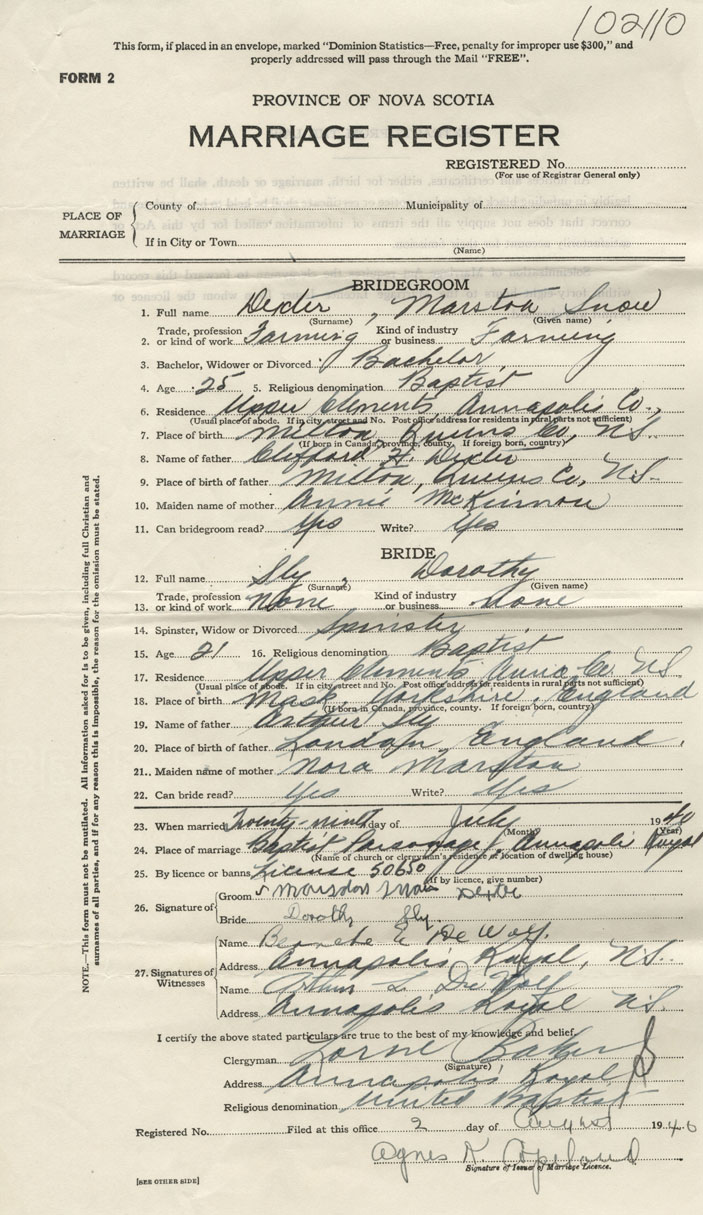 102110
This form, if placed in an envelope, marked "Dominion Statistics—Free, penalty for improper use $300," and
properly addressed will pass through the Mail "FREE".
FORM 2
PROVINCE OF NOVA SCOTIA
MARRIAGE REGISTER
REGISTERED No.
(For use of Registrar General only)
PLACE OF MARRIAGE
County of Municipality of
If in City or Town
(Name)
BRIDEGROOM
1. Full name Dexter, Marston Snow
(Surname) (Given name)
2. Trade, profession or kind of work Farming Kind of industry or business Farming
3. Bachelor, Widower or Divorced Bachelor
4. Age 25 5. Religious denomination Baptist
6. Residence Upper Clements, Annapolis Co.,
(Usual place of abode. If in city, street and No. Post office address for residents in rural parts not sufficient)
7. Place of birth Milton, Queens Co, N.S.
(If born in Canada, province, county. If foreign born, country)
8. Name of father Clifford H. Dexter
9. Place of birth of father Milton, Queens Co, N.S.
10. Maiden name of mother Annie McKinnon
11. Can bridegroom read? Yes Write? Yes
BRIDE
12. Full name Sly, Dorothy
(Surname) (Given name)
13. Trade, profession or kind of work None Kind of industry or business None
14. Spinster, Widow or Divorced Spinster
15. Age 21 16. Religious denomination Baptist
17. Residence Upper Clements Anna Co NS
(Usual place of abode. If in city, street and No. Post office address for residents in rural parts not sufficient)
18. Place of birth Mask, Yorkshire, England
(If born in Canada, province, county. If foreign born, country)
19. Name of father Arthur Sly
20. Place of birth of father London, England.
21. Maiden name of mother Nora Marston
22. Can bride read? Yes Write? Yes
23. When married Twenty-ninth day of July 1940
(Month) (Year)
24. Place of marriage Baptist Parsonage, Annapolis Royal
(Name of church or clergyman's residence or location of dwelling house)
25. By licence or banns License 50650
(If by licence, give number)
26. Signature of Groom Dexter
Bride Dorothy Sly
27. Signatures of Witnesses Name De Wolf
Address Annapolis Royal, N.S.
Name Arthur L. De Wolf
Address Annapolis Royal N.S.
I certify the above stated particulars are true to the best of my knowledge and belief.
Clergyman Lorne Baker
(Signature)
Address Annapolis Royal
Religious denomination United Baptist
Registered No. Filed at this office 2 day of August 1940
Agnes K. Copeland
Signature of Issuer of Marriage Licence.
[SEE OTHER SIDE]
NOTE.—This form must not be mutilated. All information asked for is to be given, including full Christian and
surnames of all parties, and if for any reason this is impossible, the reason for the omission must be stated.